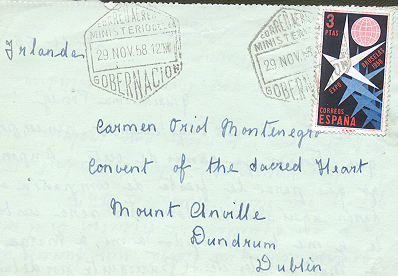 Irlanda
CORREO AEREO
MINISTERIO DE LA
29 NOV. 58 12
GOBERNACION
CORREO AEREO
MINISTERIO
29 NOV. 58
GOBERNACION
3
PTAS
EXPO
BRUSELAS
1958
CORREOS
ESPAÑA
Carmen Oriol Montenegro
Convent of the Sacred Heart
Mount Anville
Dundrum
Dublin